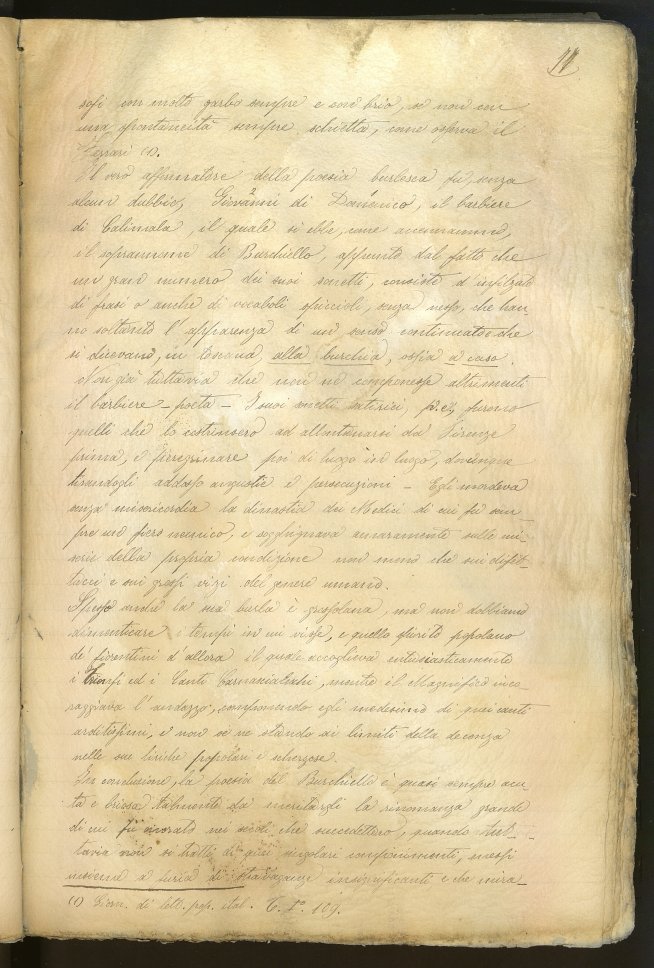 11
sofi con molto garbo sempre e con brio, se non con
una spontaneità sempre schietta, come osserva il
Ferrari (1).
Il vero affinatore della poesia burlesca fu, senza
alcun dubbio, Giovanni di Domenico, il barbiere
di Calimala, il quale si ebbe, come accennammo,
il soprannome di Burchiello, appunto dal fatto che
un gran numero dei suoi sonetti, consiste d'infilzate
di frasi o anche di vocaboli spiccioli, senza nesso, che han-
no soltanto l'apparenza di un senso continuato e che
si dicevano, in Toscana, alla burchia, ossia a caso.
Non già tuttavia che non ne componesse altrimenti
il barbiere-poeta - I suoi sonetti satirici, p. es, furono
quelli che lo costrinsero ad allontanarsi da Firenze
prima, e peregrinare poi di luogo in luogo, dovunque
tirandogli addosso angustie e persecuzioni - Egli mordeva
senza misericordia la dinastia dei Medici di cui fu sem-
pre un fiero nemico, e sogghignava amaramente sulle mi-
serie della propria condizione non meno che sui difet-
tacci e sui grossi vizi del genere umano.
Spesso anche la sua burla è grossolana, ma non dobbiamo
dimenticare i tempi in cui visse, e quello spirito popolano
de' fiorentini d'allora il quale accoglieva entusiasticamente
i Trionfi ed i Canti Carnascialeschi, mentre il Magnifico inco-
raggiava l'andazzo, componendo egli medesimo di quei canti
arditissimi, e non se ne stando ai limiti della decenza
nelle sue liriche popolari e scherzose.
In conclusione, la poesia del Burchiello è quasi sempre acu-
ta e briosa talmente da meritargli la rinomanza grande
di cui fu onorato nei secoli che succedettero, quando tut-
tavia non si tratti di quei singolari componimenti, messi
insieme a furia di stravaganze insignificanti e che mira-
(1) Giorn. di lett. pop. ital. T. I° 109.